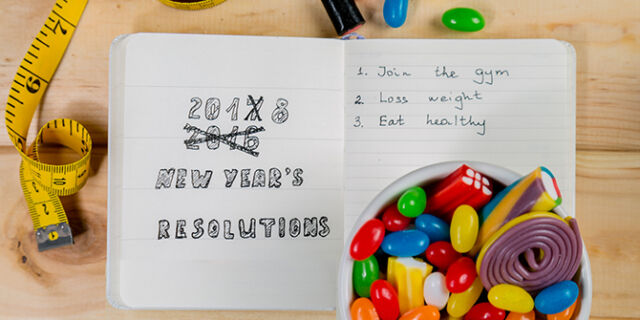 201X8
2016
NEW YEAR'S
RESOLUTIONS
1. Join the gym
2. Loss weight
3. Eat healthy